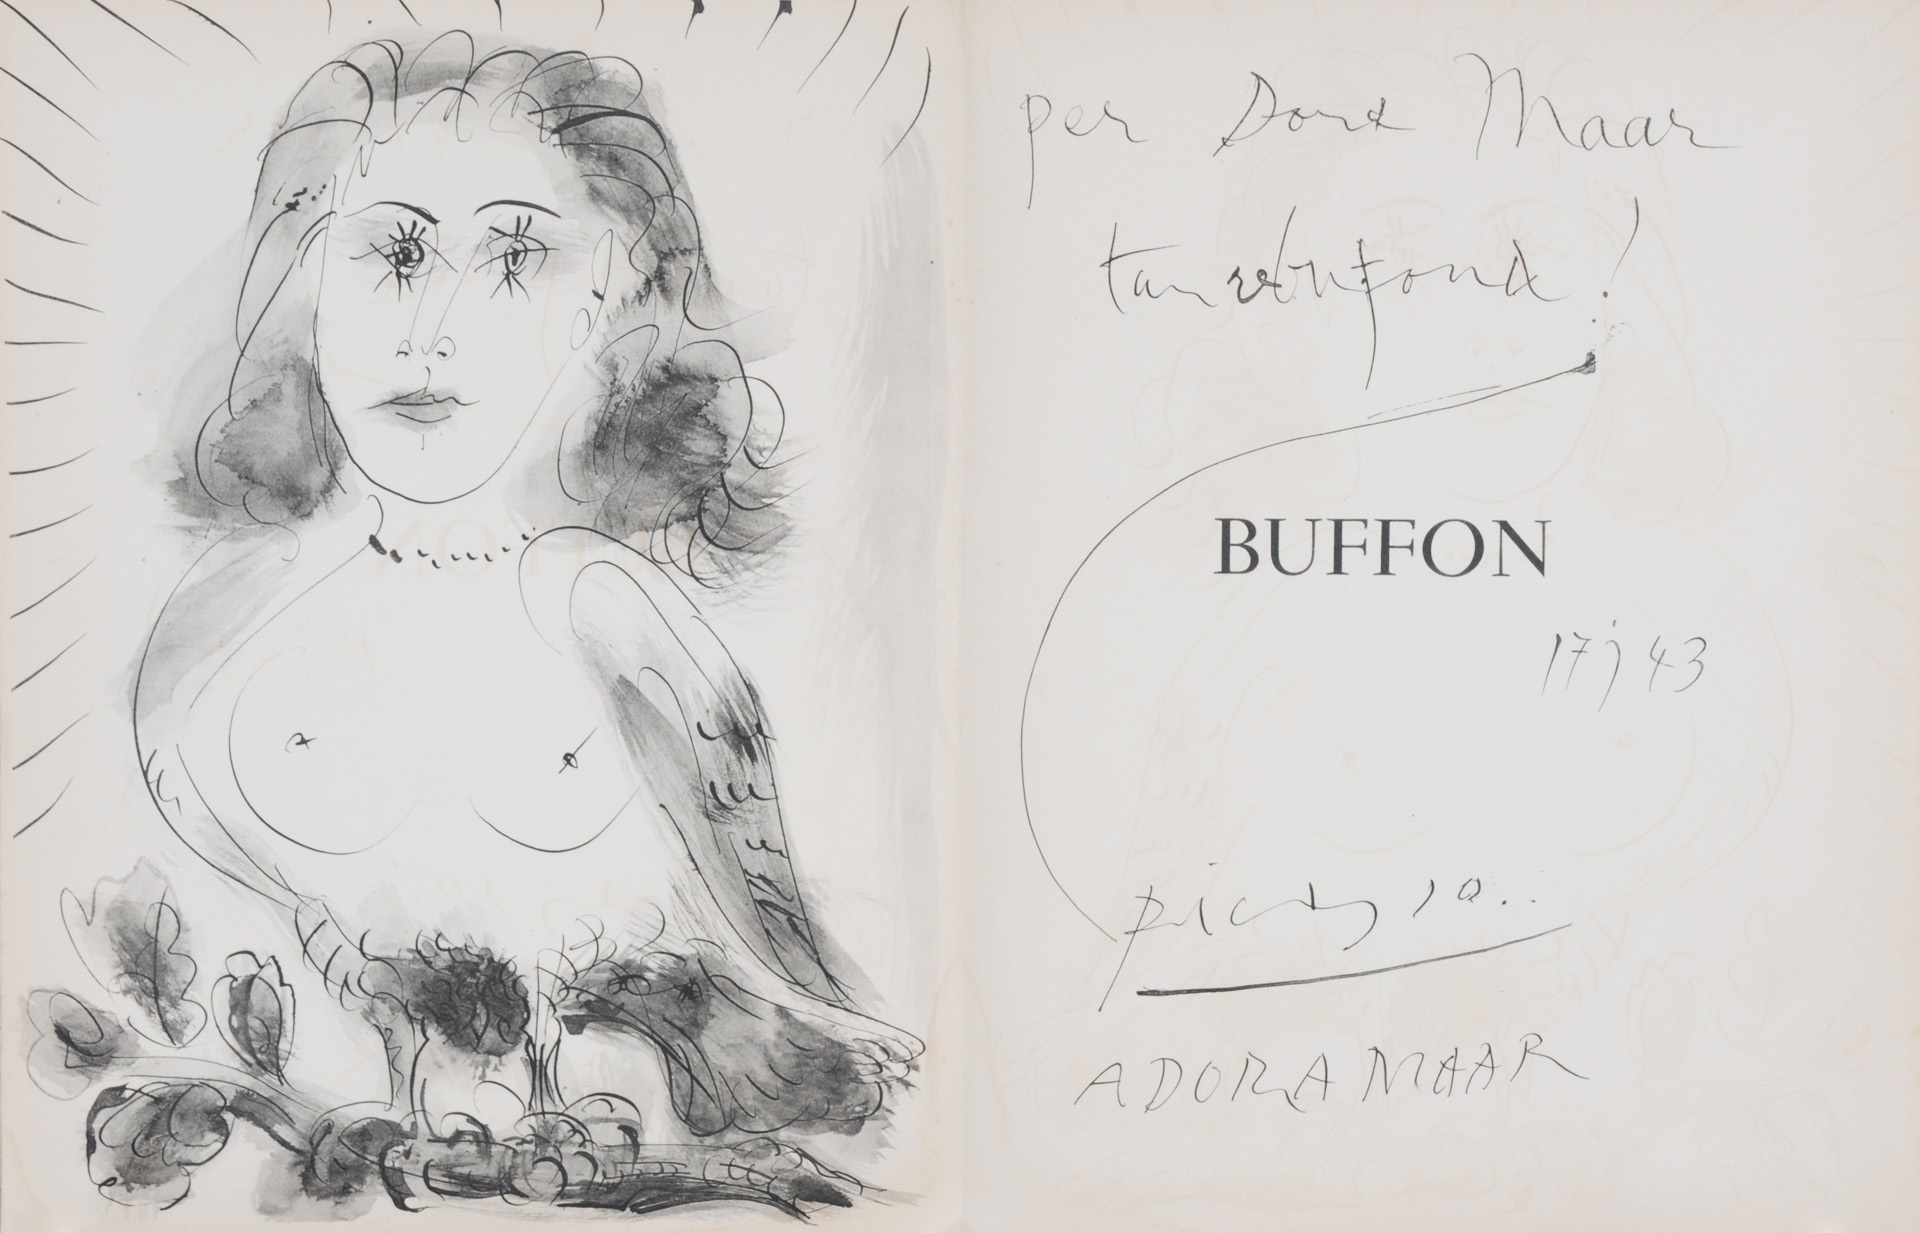 per Dora Maar
tan rebufond!
BUFFON
17 j 43
picasso..
ADORA MAAR